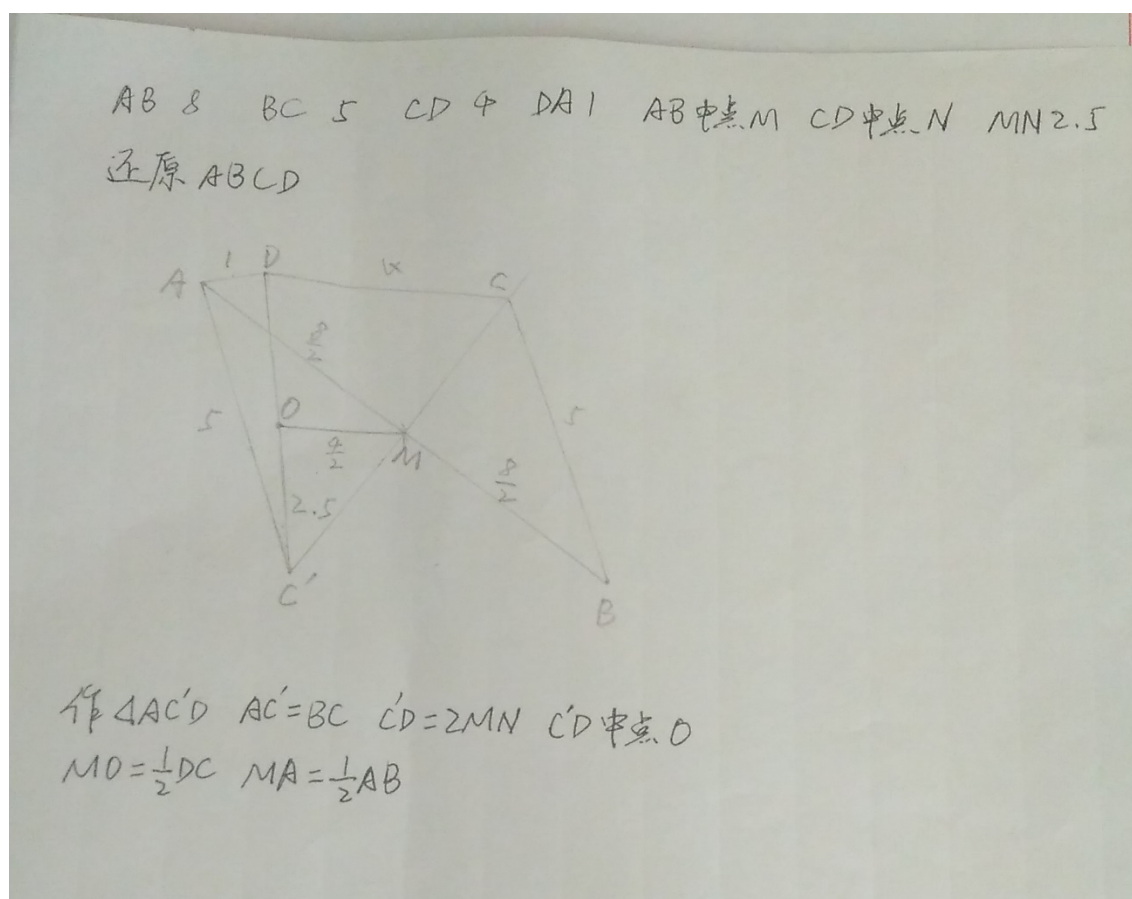 AB 8 BC 5 CD 4 DA 1 AB中点M CD中点N MN 2.5
还原ABCD
A 1 D 4 C
8/2
5 O 5
4/2 M 8/2
2.5
C′ B
作△AC′D AC′=BC C′D=2MN C′D中点O
MO=1/2DC MA=1/2AB